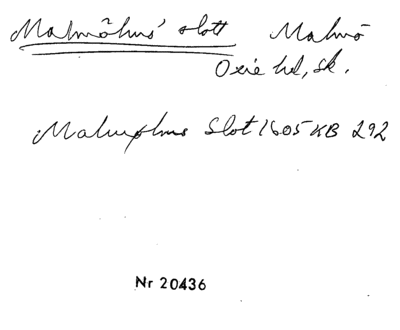 Malmöhus' slott Malmö
Oxie hd, Sk.
Malmøhus Slot 1605 KB 292
Nr 20436